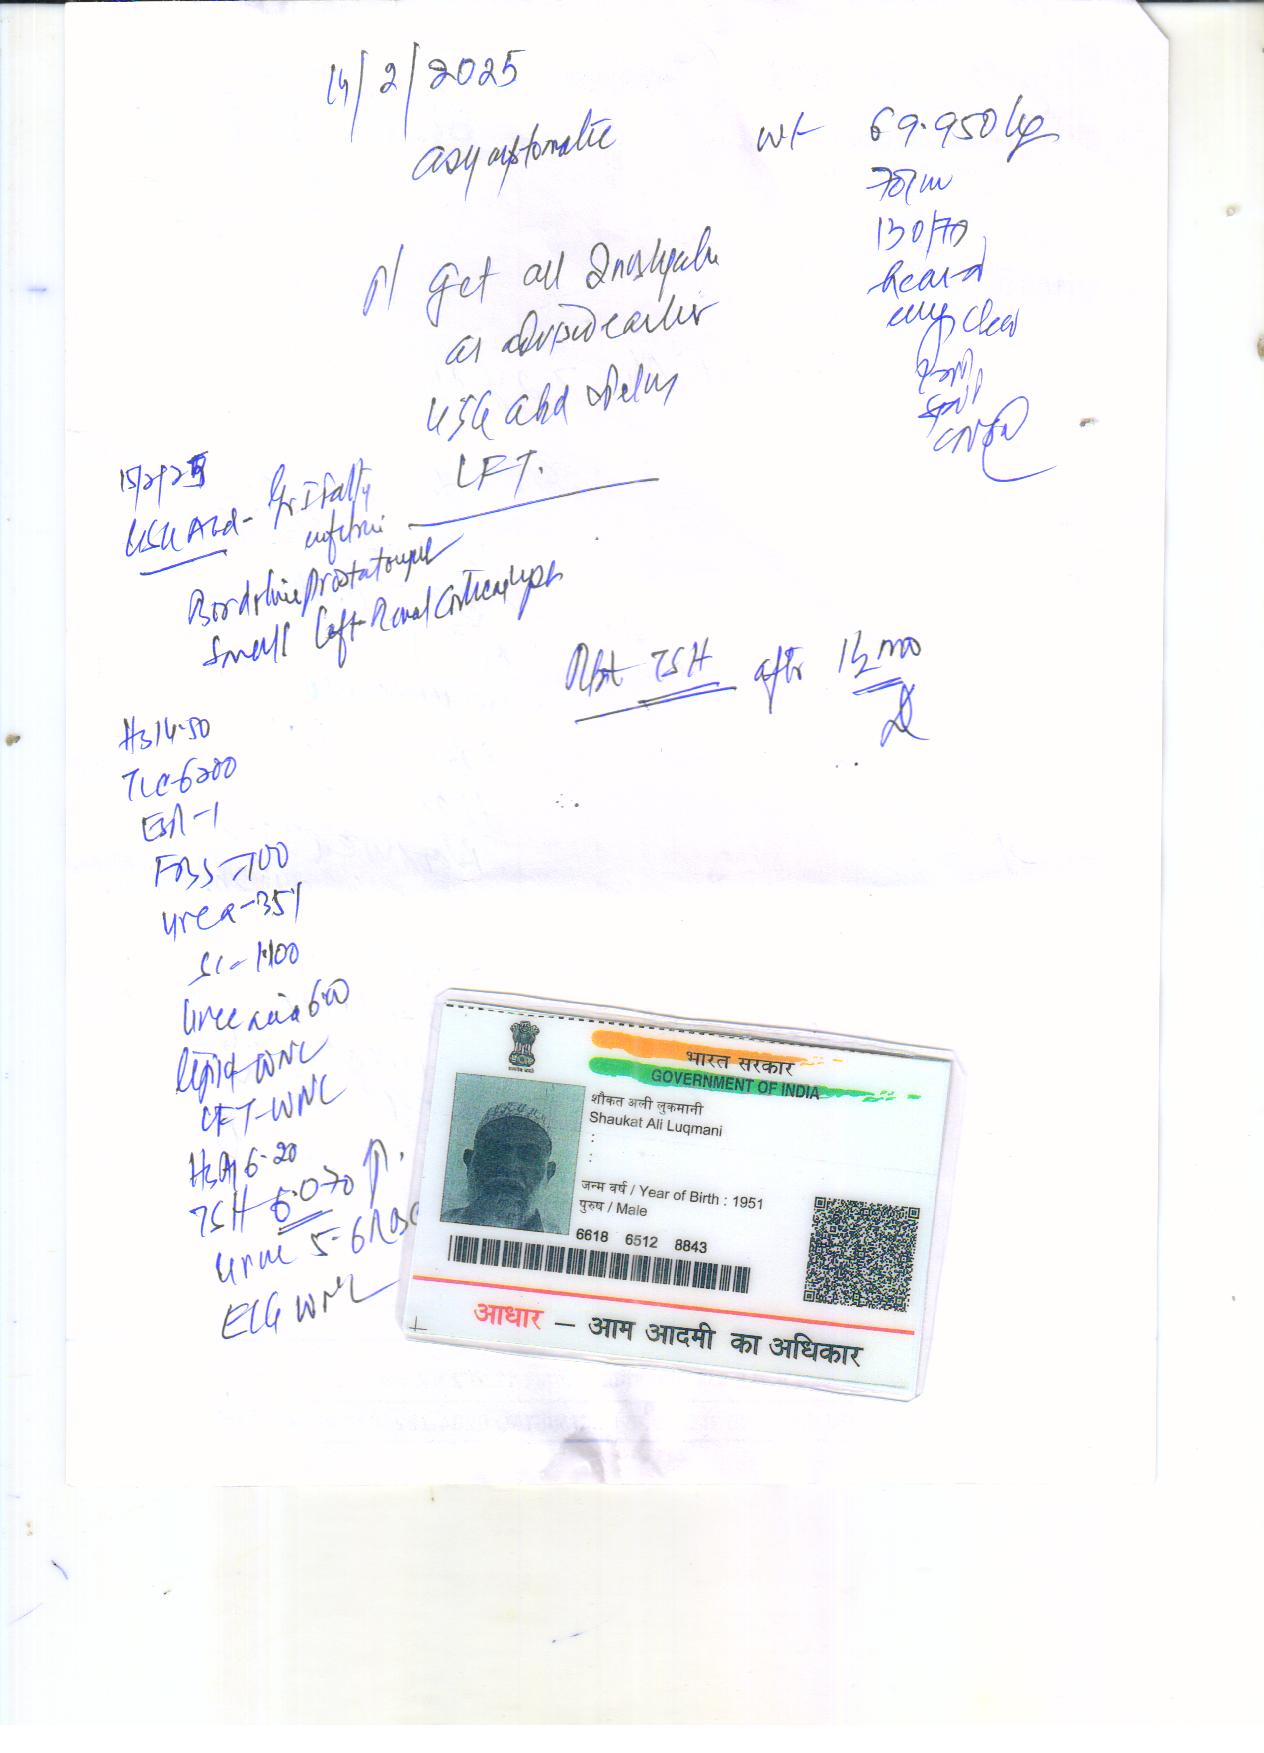 14/2/2025
asymptomatic
wt 69.950 kg
70/m
130/70
Heart
clear
CNS
Get all
as advised earlier
USG Abd Pelvis
LFT.
15/2/25
USG Abd - Gr I fatty
Borderline
Small Left Renal Cortical
Rpt TSH after 1½ mo
Hb 14.50
TLC-6200
ESR-1
FBS-100
Urea-35
SC-1.100
Uric acid 6.00
Lipid WNL
LFT-WNL
HbA 6.20
TSH 6.070 ↑.
Urine 5-6
ECG WNL
भारत सरकार
GOVERNMENT OF INDIA
शौकत अली लुकमानी
Shaukat Ali Luqmani
:
:
जन्म वर्ष / Year of Birth : 1951
पुरुष / Male
6618 6512 8843
आधार – आम आदमी का अधिकार